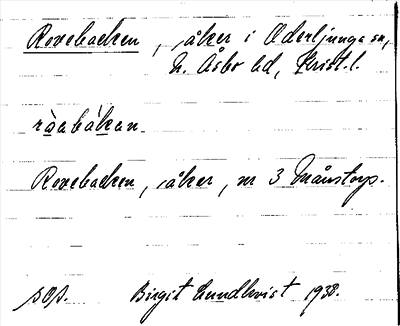 Rovebacken, åker i Oderljunga sn,
N. Åsbo hd, Krist. l.
råabákan
Rovebacken, åker, nr 3 Månstorp.
sOp. Birgit Lundkvist 1938.